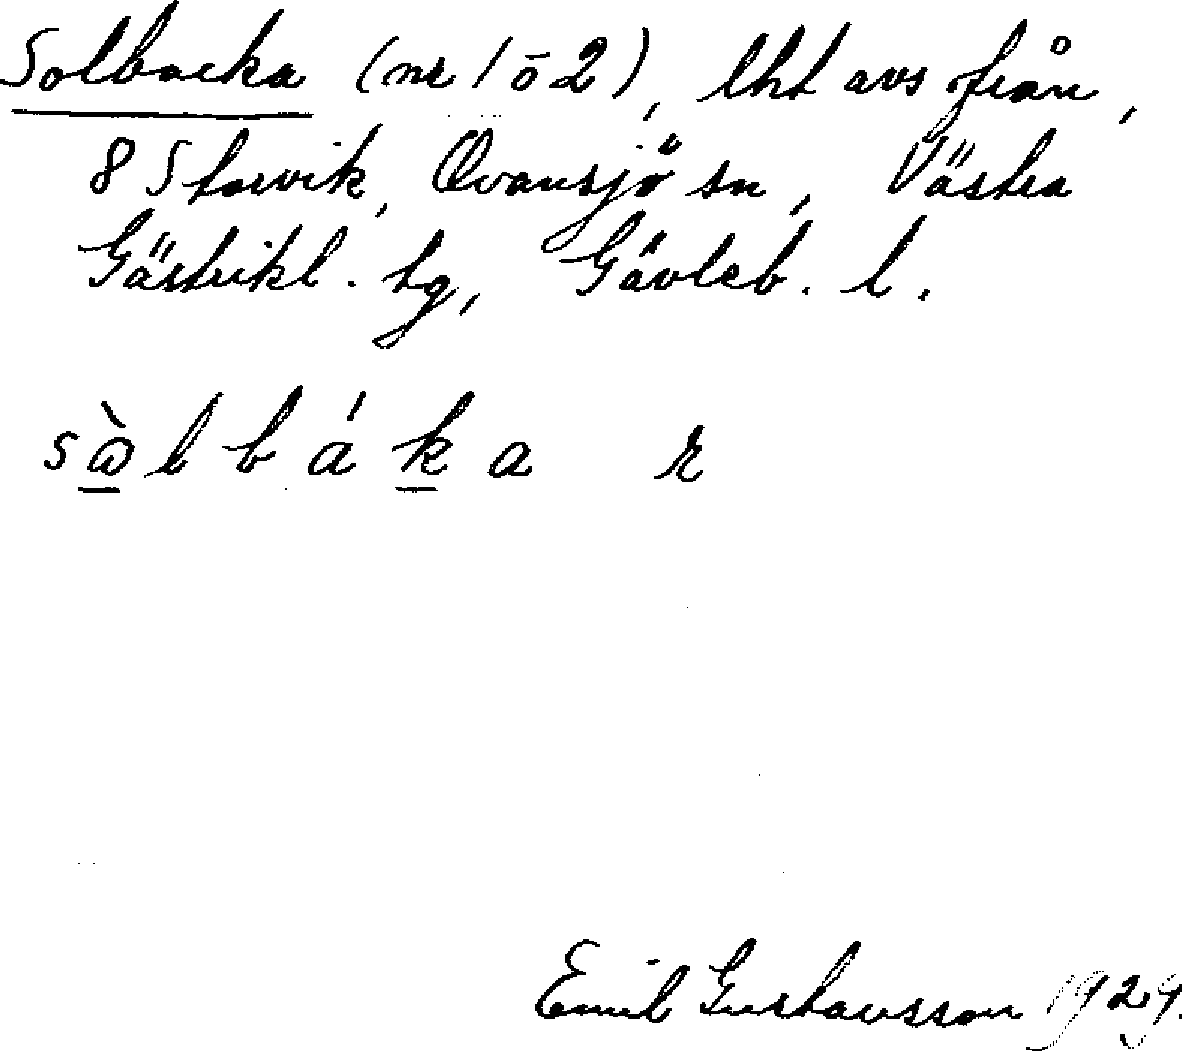 Solbacka (nr 1 o 2), lht avs från,
8 Storvik, Ovansjö sn, Västra
Gästrikl. tg, Gävleb. l.
sὰlbáka r
Emil Gustavsson 1929.